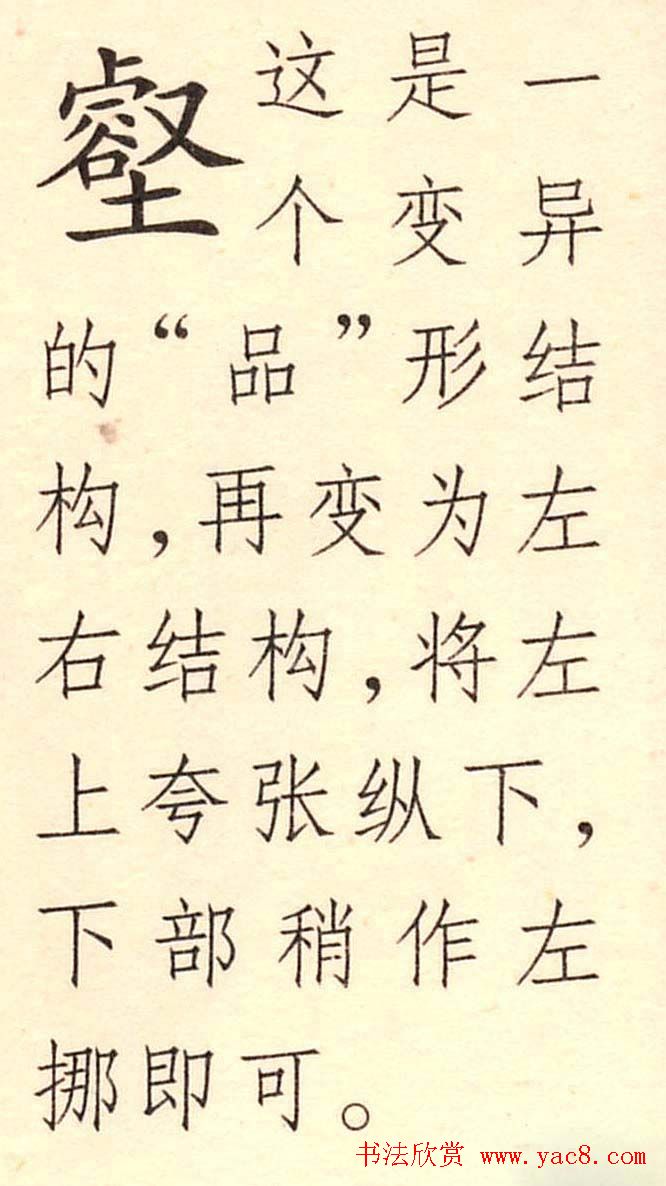 壑
这是一
个变异
的“品”形结
构,再变为左
右结构,将左
上夸张纵下,
下部稍作左
挪即可。
书法欣赏 www.yac8.com